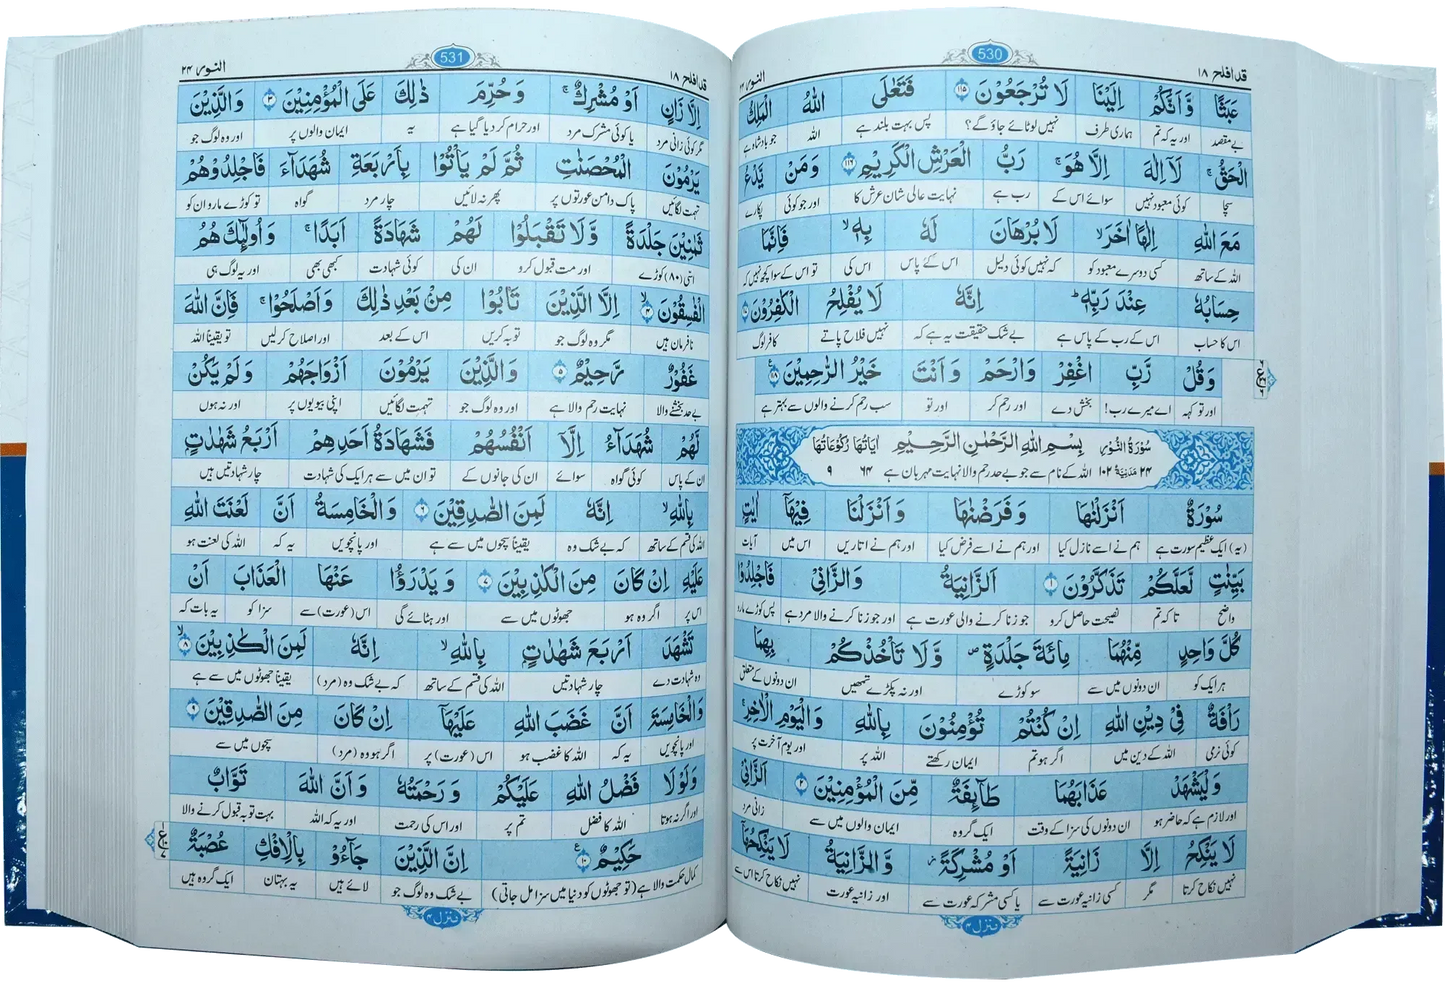 قد افلح ١٨
530
النور ٢٤
عَبَثًا وَّ اَنَّكُمْ اِلَيْنَا لَا تُرْجَعُوْنَ ١١٥ فَتَعٰلَى اللّٰهُ الْمَلِكُ
بے مقصد اور یہ کہ تم ہماری طرف نہیں لوٹائے جاؤ گے؟ پس بہت بلند ہے اللہ جو بادشاہ ہے
الْحَقُّ ۚ لَاۤ اِلٰهَ اِلَّا هُوَ ۚ رَبُّ الْعَرْشِ الْكَرِيْمِ ١١٦ وَمَنْ يَّدْعُ
سچا کوئی معبود نہیں سوائے اس کے رب ہے نہایت عالی شان عرش کا اور جو کوئی پکارے
مَعَ اللّٰهِ اِلٰهًا اٰخَرَ ۙ لَا بُرْهَانَ لَهٗ بِهٖ ۙ فَاِنَّمَا
اللہ کے ساتھ کسی دوسرے معبود کو کہ نہیں کوئی دلیل اس کے پاس اس کی تو اس کے سوا کچھ نہیں کہ
حِسَابُهٗ عِنْدَ رَبِّهٖ ؕ اِنَّهٗ لَا يُفْلِحُ الْكٰفِرُوْنَ
اس کا حساب اس کے رب کے پاس ہے بے شک حقیقت یہ ہے کہ نہیں فلاح پاتے کافر لوگ
وَقُلْ رَّبِّ اغْفِرْ وَارْحَمْ وَ اَنْتَ خَيْرُ الرّٰحِمِيْنَ ١١٨
اور تو کہہ اے میرے رب! بخش دے اور رحم کر اور تو سب رحم کرنے والوں سے بہتر ہے
سُوْرَةُ النُّوْرِ بِسْمِ اللّٰهِ الرَّحْمٰنِ الرَّحِيْمِ اٰيَاتُهَا رُكُوْعَاتُهَا
٢٤ مَدَنِيَّةٌ ١٠٢ اللہ کے نام سے جو بے حد رحم والا نہایت مہربان ہے ٦٤ ٩
سُوْرَةٌ اَنْزَلْنٰهَا وَ فَرَضْنٰهَا وَ اَنْزَلْنَا فِيْهَاۤ اٰيٰتٍۭ
(یہ) ایک عظیم سورت ہے ہم نے اسے نازل کیا اور ہم نے اسے فرض کیا اور ہم نے اتاریں اس میں آیات
بَيِّنٰتٍ لَّعَلَّكُمْ تَذَكَّرُوْنَ ١ اَلزَّانِيَةُ وَالزَّانِيْ فَاجْلِدُوْا
واضح تاکہ تم نصیحت حاصل کرو جو زنا کرنے والی عورت ہے اور جو زنا کرنے والا مرد ہے پس کوڑے مارو
كُلَّ وَاحِدٍ مِّنْهُمَا مِائَةَ جَلْدَةٍ ۪ وَّ لَا تَاْخُذْكُمْ بِهِمَا
ہر ایک کو ان دونوں میں سے سو کوڑے اور نہ پکڑے تمہیں ان دونوں کے متعلق
رَاْفَةٌ فِيْ دِيْنِ اللّٰهِ اِنْ كُنْتُمْ تُؤْمِنُوْنَ بِاللّٰهِ وَ الْيَوْمِ الْاٰخِرِ ۚ
کوئی نرمی اللہ کے دین میں اگر ہو تم ایمان رکھتے اللہ پر اور یوم آخرت پر
وَلْيَشْهَدْ عَذَابَهُمَا طَآئِفَةٌ مِّنَ الْمُؤْمِنِيْنَ ٢ اَلزَّانِيْ
اور لازم ہے کہ حاضر ہو ان دونوں کی سزا کے وقت ایک گروہ ایمان والوں میں سے زانی مرد
لَا يَنْكِحُ اِلَّا زَانِيَةً اَوْ مُشْرِكَةً ۫ وَّ الزَّانِيَةُ لَا يَنْكِحُهَاۤ
نہیں نکاح کرتا مگر کسی زانیہ عورت سے یا کسی مشرکہ عورت سے اور زانیہ عورت نہیں نکاح کرتا اس سے
منزل ٤
قد افلح ١٨
531
النور ٢٤
اِلَّا زَانٍ اَوْ مُشْرِكٌ ۚ وَ حُرِّمَ ذٰلِكَ عَلَى الْمُؤْمِنِيْنَ ٣ وَالَّذِيْنَ
مگر کوئی زانی مرد یا کوئی مشرک مرد اور حرام کر دیا گیا ہے یہ ایمان والوں پر اور وہ لوگ جو
يَرْمُوْنَ الْمُحْصَنٰتِ ثُمَّ لَمْ يَاْتُوْا بِاَرْبَعَةِ شُهَدَآءَ فَاجْلِدُوْهُمْ
تہمت لگائیں پاک دامن عورتوں پر پھر نہ لائیں چار مرد گواہ تو کوڑے مارو ان کو
ثَمٰنِيْنَ جَلْدَةً وَّ لَا تَقْبَلُوْا لَهُمْ شَهَادَةً اَبَدًا ۚ وَ اُولٰٓئِكَ هُمُ
اسّی (۸۰) کوڑے اور مت قبول کرو ان کی کوئی شہادت کبھی بھی اور یہ لوگ ہی
الْفٰسِقُوْنَ ۙ ٤ اِلَّا الَّذِيْنَ تَابُوْا مِنْۢ بَعْدِ ذٰلِكَ وَ اَصْلَحُوْا ۚ فَاِنَّ اللّٰهَ
نافرمان ہیں مگر وہ لوگ جو توبہ کریں اس کے بعد اور اصلاح کر لیں تو یقیناً اللہ
غَفُوْرٌ رَّحِيْمٌ ٥ وَالَّذِيْنَ يَرْمُوْنَ اَزْوَاجَهُمْ وَ لَمْ يَكُنْ
بے حد بخشنے والا نہایت رحم والا ہے اور وہ لوگ جو تہمت لگائیں اپنی بیویوں پر اور نہ ہوں
لَّهُمْ شُهَدَآءُ اِلَّاۤ اَنْفُسُهُمْ فَشَهَادَةُ اَحَدِهِمْ اَرْبَعُ شَهٰدٰتٍۭ
ان کے پاس کوئی گواہ سوائے ان کی جانوں کے تو ان میں سے ہر ایک کی شہادت چار شہادتیں ہیں
بِاللّٰهِ ۙ اِنَّهٗ لَمِنَ الصّٰدِقِيْنَ ٦ وَالْخَامِسَةُ اَنَّ لَعْنَتَ اللّٰهِ
اللہ کی قسم کے ساتھ کہ بے شک وہ یقیناً سچوں میں سے ہے اور پانچویں یہ کہ اللہ کی لعنت ہو
عَلَيْهِ اِنْ كَانَ مِنَ الْكٰذِبِيْنَ ٧ وَ يَدْرَؤُا عَنْهَا الْعَذَابَ اَنْ
اس پر اگر وہ ہو جھوٹوں میں سے اور ہٹائے گی اس (عورت) سے سزا کو یہ بات کہ
تَشْهَدَ اَرْبَعَ شَهٰدٰتٍۭ بِاللّٰهِ ۙ اِنَّهٗ لَمِنَ الْكٰذِبِيْنَ ۙ ٨
وہ شہادت دے چار شہادتیں اللہ کی قسم کے ساتھ کہ بے شک وہ (مرد) یقیناً جھوٹوں میں سے ہے
وَالْخَامِسَةَ اَنَّ غَضَبَ اللّٰهِ عَلَيْهَاۤ اِنْ كَانَ مِنَ الصّٰدِقِيْنَ ٩
اور پانچویں یہ کہ اللہ کا غضب ہو اس (عورت) پر اگر ہو وہ (مرد) سچوں میں سے
وَلَوْ لَا فَضْلُ اللّٰهِ عَلَيْكُمْ وَ رَحْمَتُهٗ وَ اَنَّ اللّٰهَ تَوَّابٌ
اور اگر نہ ہوتا اللہ کا فضل تم پر اور اس کی رحمت اور یہ کہ اللہ بہت توبہ قبول کرنے والا
حَكِيْمٌ ١٠ اِنَّ الَّذِيْنَ جَآءُوْ بِالْاِفْكِ عُصْبَةٌ
کمال حکمت والا ہے (تو جھوٹوں کو دنیا میں سزا مل جاتی) بے شک وہ لوگ جو لائے ہیں یہ بہتان ایک گروہ ہیں
منزل ٤